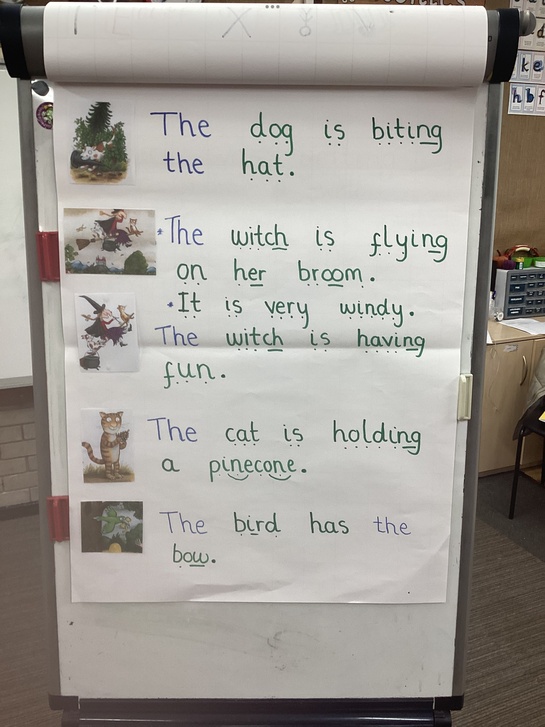 The dog is biting
the hat.
*The witch is flying
on her broom.
*It is very windy.
The witch is having
fun.
The cat is holding
a pinecone.
The bird has the
bow.
k e
h b f